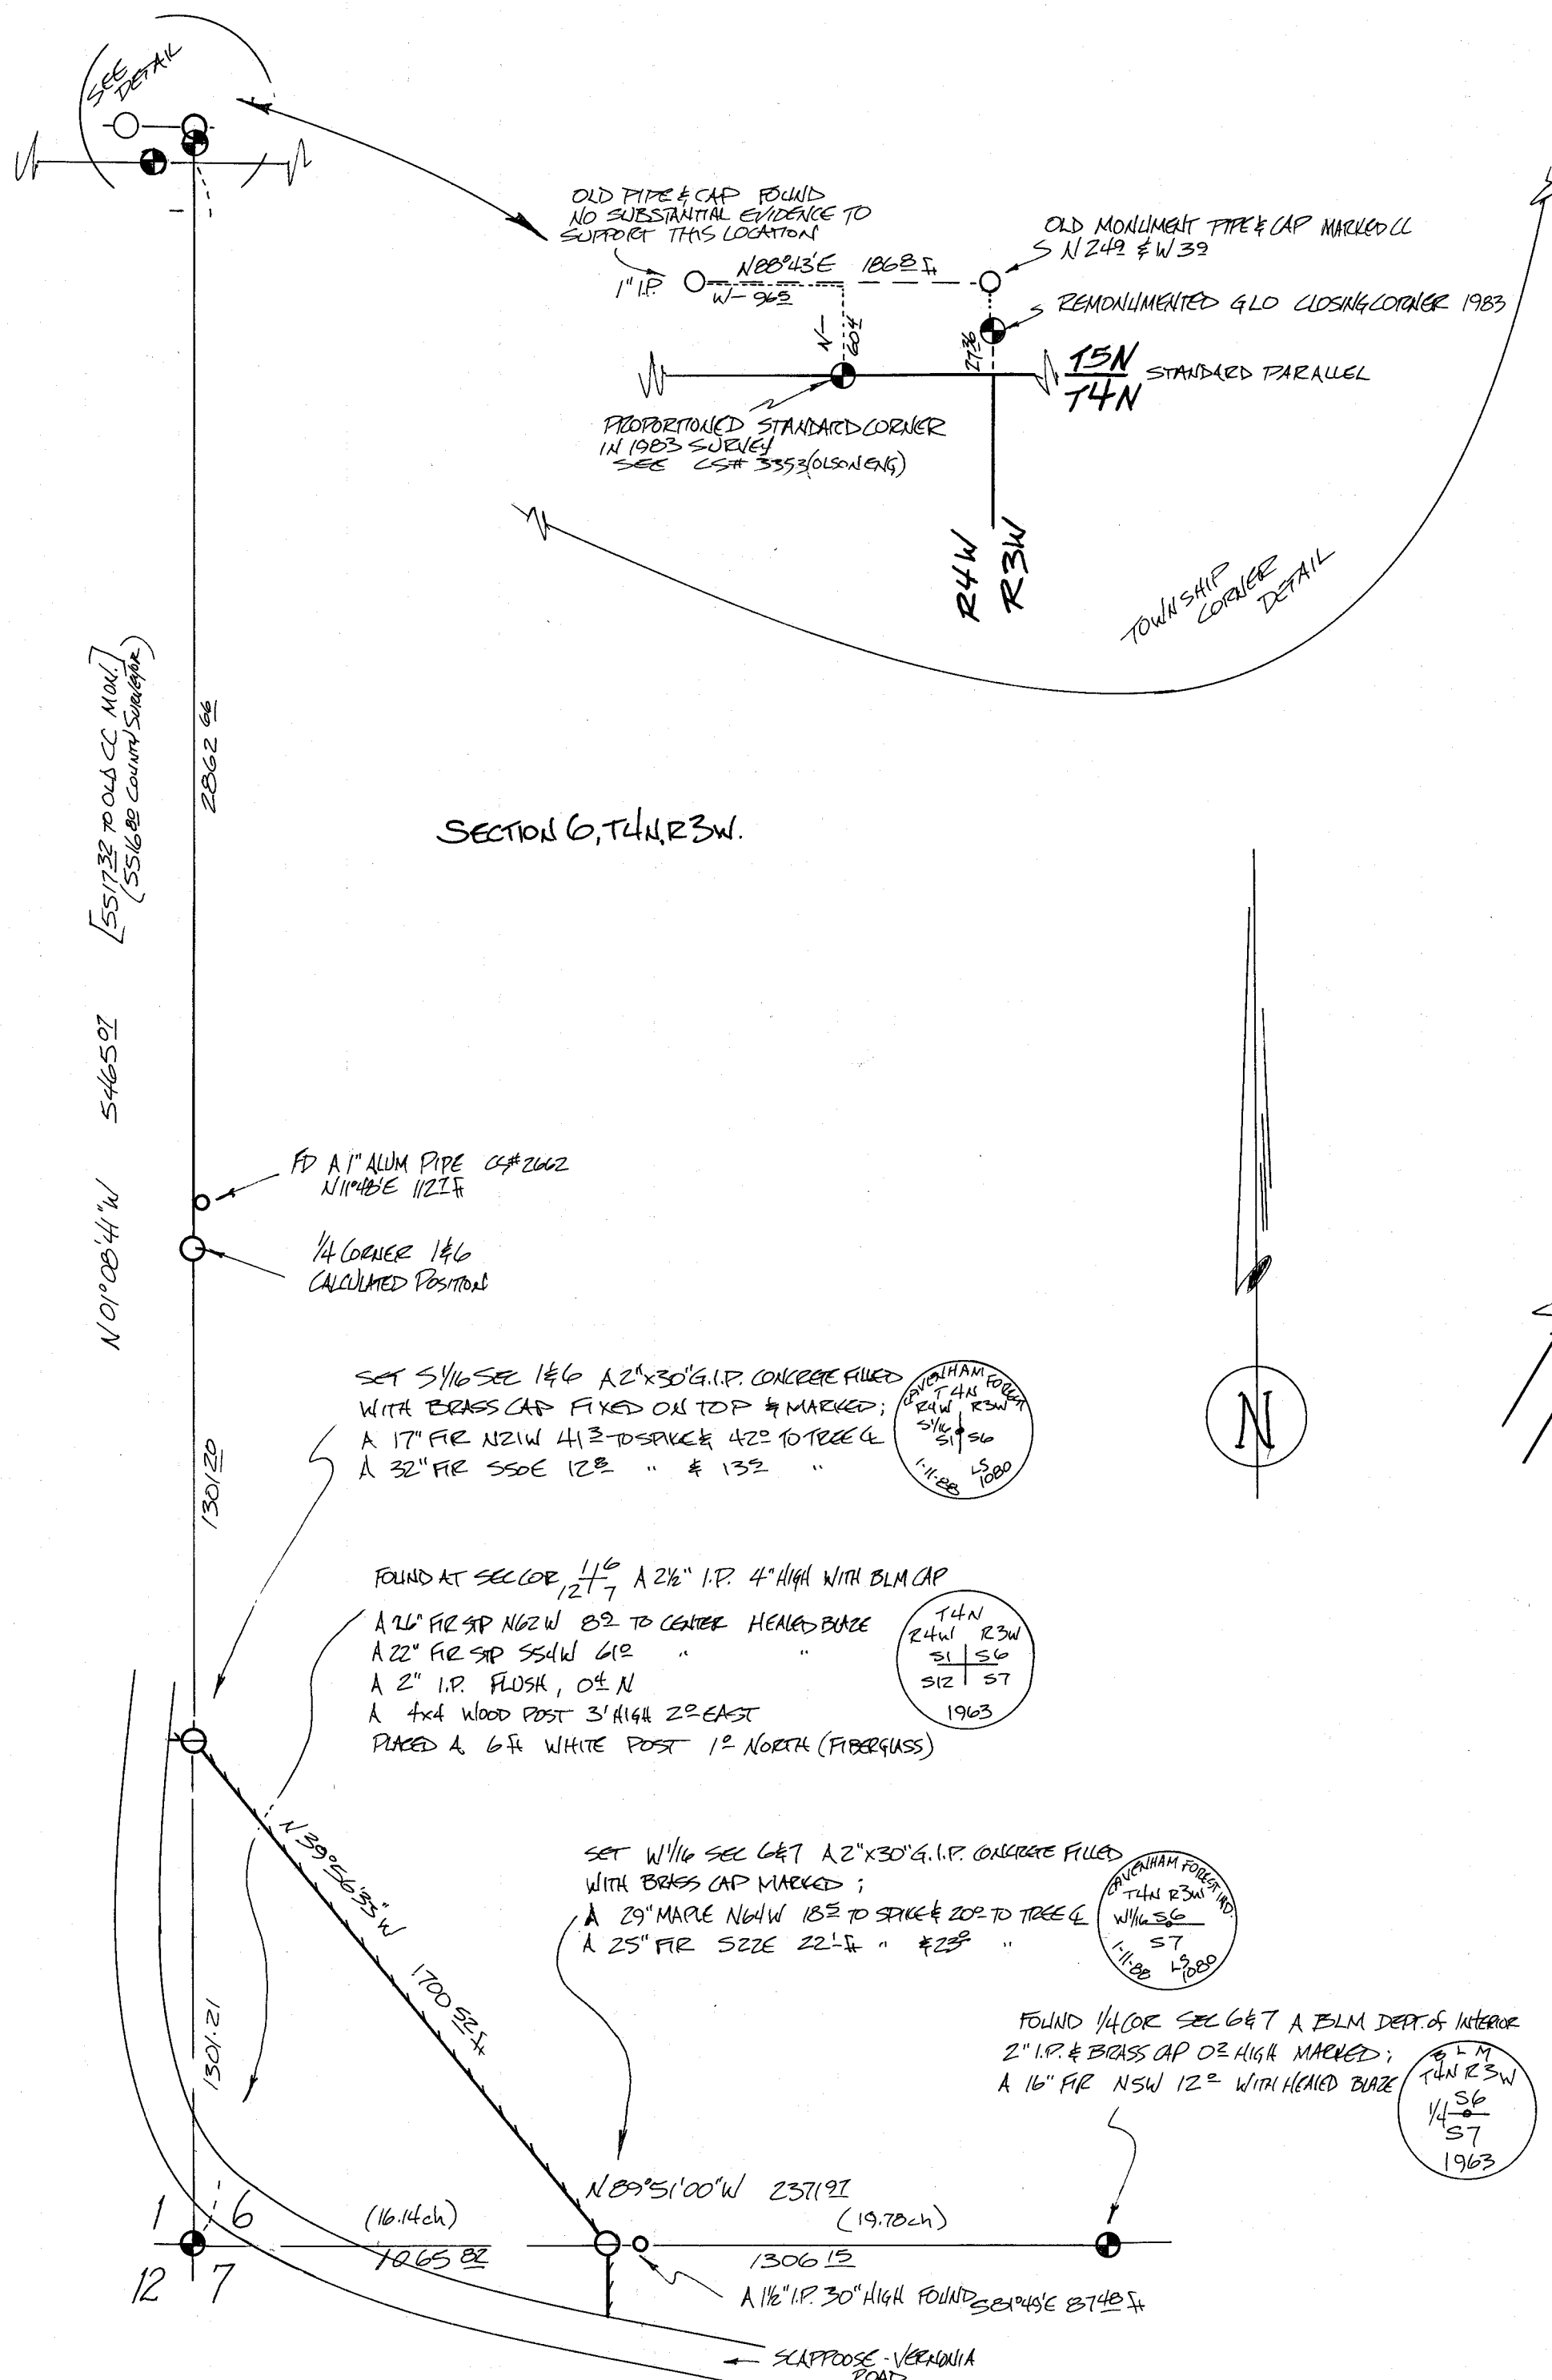 SEE
DETAIL
OLD PIPE & CAP FOUND
NO SUBSTANTIAL EVIDENCE TO
SUPPORT THIS LOCATION
1" I.P.
N88°43'E 186 8 ft
W- 96 5
N- 60 4
27 36
OLD MONUMENT PIPE & CAP MARKED CC
S N 24 9 & W 3 9
REMONUMENTED GLO CLOSING CORNER 1983
T5N
T4N
STANDARD PARALLEL
PROPORTIONED STANDARD CORNER
IN 1983 SURVEY
SEE CS# 3353 (OLSON ENG)
R4W
R3W
TOWNSHIP
CORNER
DETAIL
[5517 32 TO OLD CC MON.]
(5516 80 COUNTY SURVEYOR)
2862 66
SECTION 6, T4N, R3W.
N01°08'41"W 5465 07
FD A 1" ALUM PIPE CS#2662
N11°48'E 112 7 ft
1/4 CORNER 1&6
CALCULATED POSITION
1301 20
SET S 1/16 SEC 1&6 A 2"x30" G.I.P. CONCRETE FILLED
WITH BRASS CAP FIXED ON TOP & MARKED;
A 17" FIR N21W 41 3 TO SPIKE & 42 0 TO TREE ℄
A 32" FIR S50E 12 8 " & 13 2 "
CAVENHAM FOREST
T4N
R4W R3W
S1/16
S1 S6
1-11-88 LS 1080
N
FOUND AT SEC COR 1 6 12 7 A 2½" I.P. 4" HIGH WITH BLM CAP
A 26" FIR STP N62W 8 2 TO CENTER HEALED BLAZE
A 22" FIR STP S54W 61 0 " "
A 2" I.P. FLUSH, 0 4 N
A 4x4 WOOD POST 3' HIGH 2 0 EAST
PLACED A 6 ft WHITE POST 1 0 NORTH (FIBERGLASS)
T4N
R4W R3W
S1 S6
S12 S7
1963
N39°56'35"W
1700 52 ft
1301.21
SET W 1/16 SEC 6&7 A 2"x30" G.I.P. CONCRETE FILLED
WITH BRASS CAP MARKED;
A 29" MAPLE N64W 18 5 TO SPIKE & 20 0 TO TREE ℄
A 25" FIR S22E 22 1 ft " & 23 0 "
CAVENHAM FOREST IND.
T4N R3W
W1/16 S6
S7
1-11-88 LS 1080
FOUND 1/4 COR SEC 6&7 A BLM DEPT. of INTERIOR
2" I.P. & BRASS CAP 0 2 HIGH MARKED;
A 16" FIR N5W 12 0 WITH HEALED BLAZE
BLM
T4N R3W
1/4 S6
S7
1963
N89°51'00"W 2371 97
1 6
12 7
(16.14ch)
1065 82
(19.78ch)
1306 15
A 1½" I.P. 30" HIGH FOUND S81°49'E 87 48 ft
SCAPPOOSE-VERNONIA
ROAD